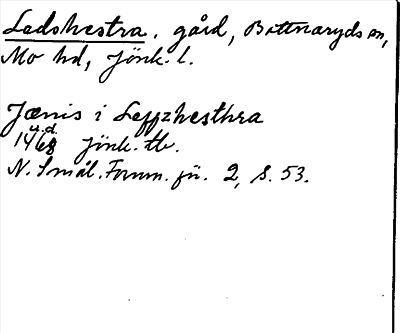 Ledshestra. gård, Bottnaryds sn,
Mo hd, Jönk. l.
Jænis i Leffzhesthra
u.d.
1468 Jönk. tb.
N. Smål. Fornm. för. 2, s. 53.